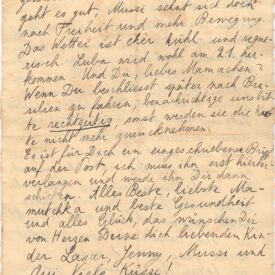 geht es gut, Mussi sehnt sich doch
nach Freiheit und mehr Bewegung.
Das Wetter ist eher kühl und regne-
risch. Luba wird wohl am 21. her-
kommen. Und Du, liebes Mamachen?
Wenn Du beschliesst später nach Bra-
silien zu fahren, benachrichtige uns bit-
te rechtzeitig, sonst werden sie ohne
te nicht mehr zurücknehmen.
Es ist für Dich ein eingeschriebener Brief
auf der Post, ich muss ihn erst hierher
verlangen und werde ihn Dir dann
schicken. Alles Beste, liebste Ma-
mutchka und beste Gesundheit
und alles Glück, das wünschen Dir
von Herzen Deine dich liebenden Kin-
der Lasar, Jenny, Mussi und
viele Küsse!